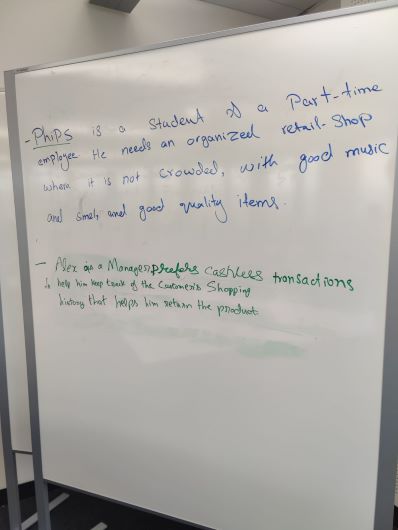 - Phips is a student & a Part-time
employee He needs an organized retail-shop
where it is not crowded, with good music
and smell and good quality items.
- Alex as a Manager prefers cashless transactions
to help him keep track of the Customer's Shopping
history that helps him return the product